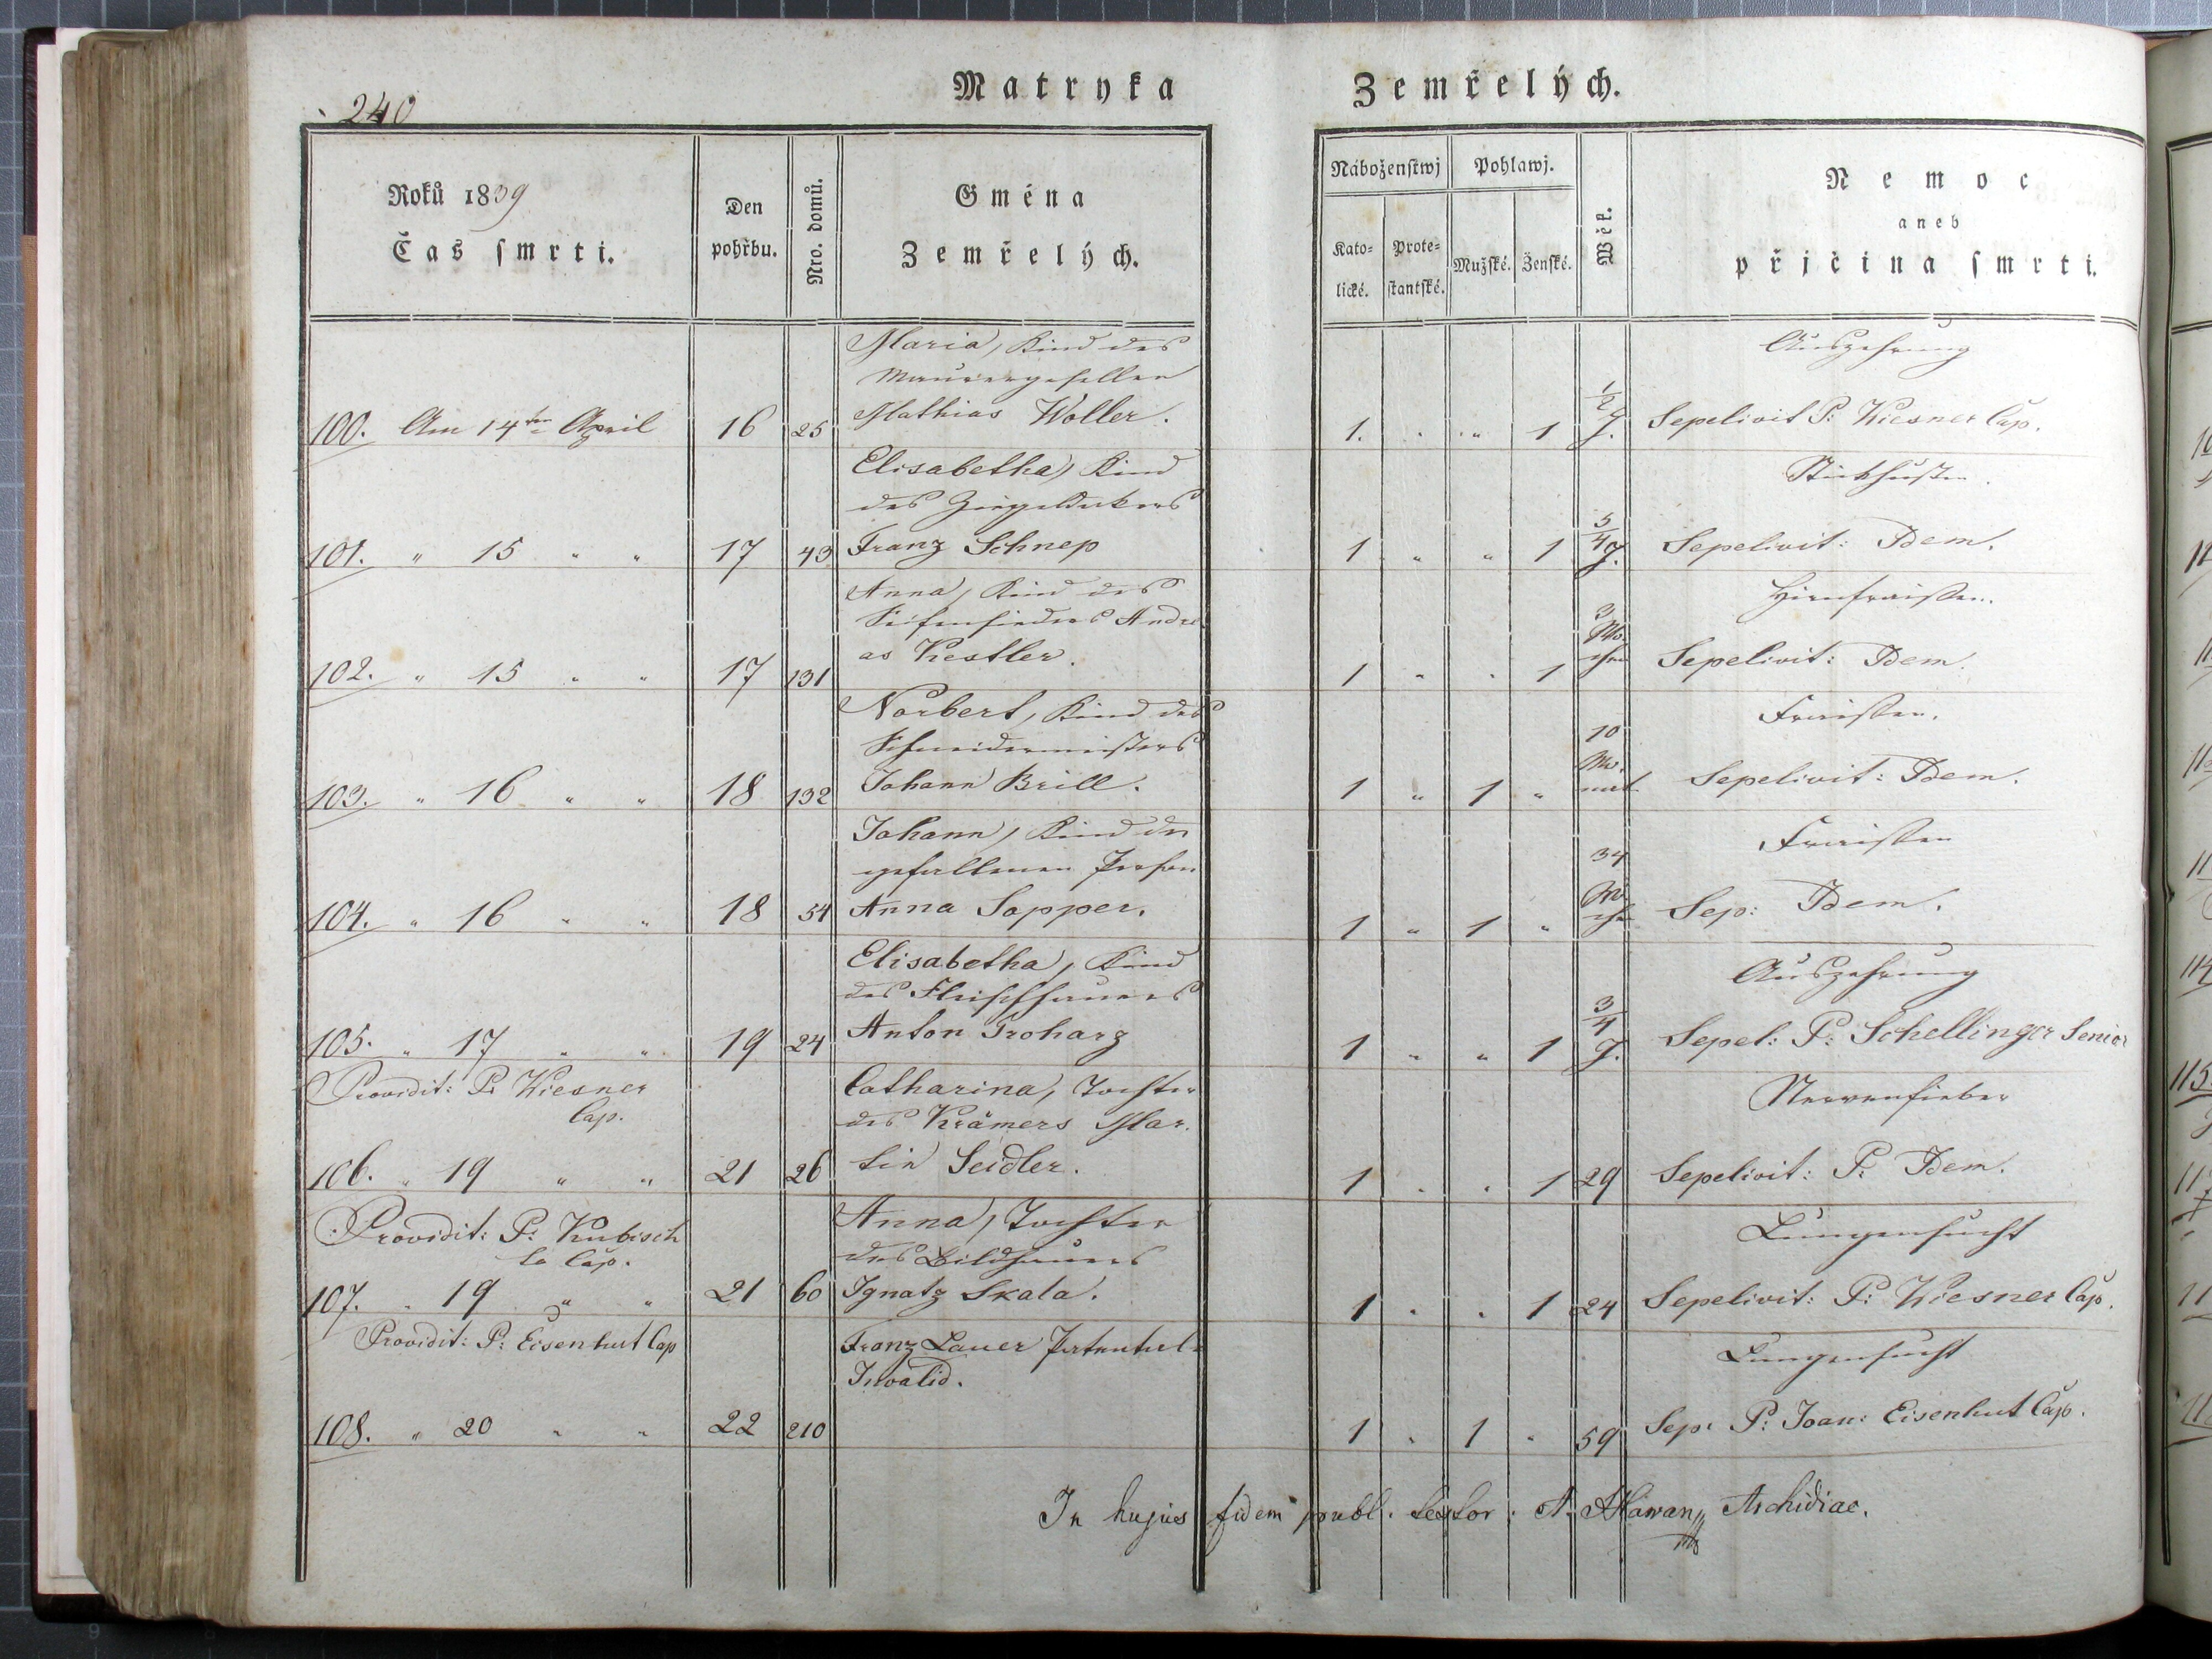 240
Matryka Zemřelých.
Roků 1839
Čas smrti.
Den pohřbu.
Nro. domů.
Gména Zemřelých.
Náboženstwj
Kato=lické.
Prote=stantské.
Pohlawj.
Mužské.
Ženské.
Wěk.
Nemoc
aneb
přjčina smrti.
Maria, Kind des
Maurergesellen
100. Am 14ten April 16 25 Mathias Woller. 1. " " 1 1/2 J.
Auszehrung
Sepelivit P: Wiesner Cap.
Elisabetha, Kind
des Ziegeldeckers
101. " 15 " " 17 43 Franz Schnep 1 " " 1 5/4 J.
Stickhusten.
Sepelivit: Idem.
Anna, Kind des
Seifensieders Andre
102. " 15 " " 17 131 as Kestler. 1 " " 1 3 Wochen
Hirnfraisen.
Sepelivit: Idem.
Norbert, Kind des
Schneidermeisters
103. " 16 " " 18 132 Johann Brill. 1 " 1 " 10 Monat.
Fraisen.
Sepelivit: Idem.
Johann, Kind der
gefallenen Person
104. " 16 " " 18 54 Anna Sopper. 1 " 1 " 34 Wochen
Fraisen
Sep: Idem.
Elisabetha, Kind
des Fleischhauers
105. " 17 " " 19 24 Anton Proharz 1 " " 1 3/4 J.
Auszehrung
Sepel: P: Schellinger Senior
Providit: P: Wiesner
Cap.
Catharina, Tochter
des Krämers Mar
106. " 19 " " 21 26 tin Seidler. 1 " " 1 29
Nervenfieber
Sepelivit: P: Idem.
Providit: P: Kubisch
Cap.
Anna, Tochter
des Bildhauers
107. " 19 " " 21 60 Ignatz Skala. 1 " " 1 24
Lungensucht
Sepelivit: P: Wiesner Cap.
Providit: P: Eisenhut Cap
Franz Lauer Patental=
Invalid.
108. " 20 " " 22 210 1 " 1 " 59
Lungensucht
Sep: P: Joan: Eisenhut Cap.
In hujus fidem publ. testor. A. Hawan Archidiac.